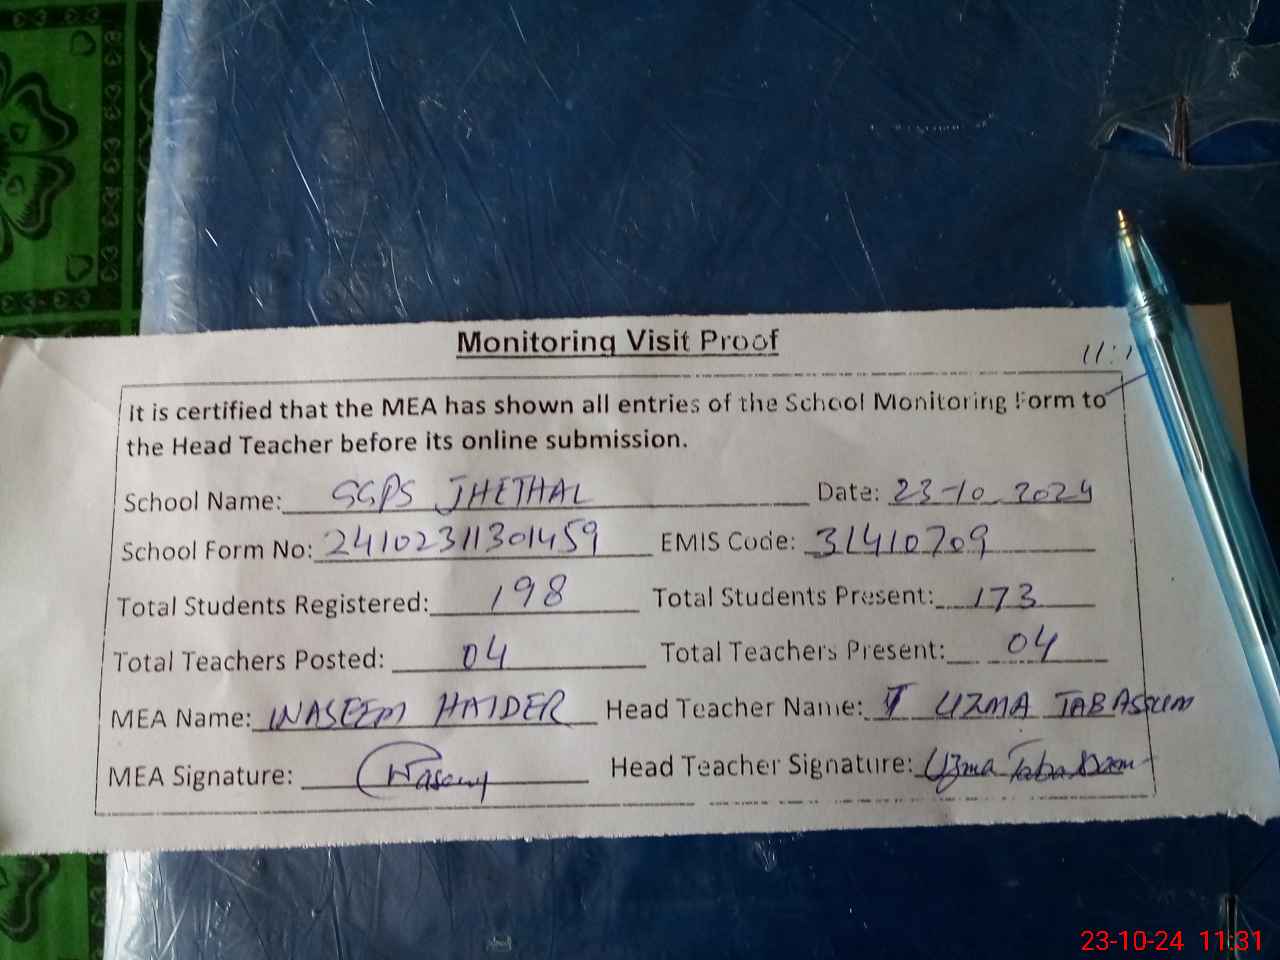 Monitoring Visit Proof
11:1
It is certified that the MEA has shown all entries of the School Monitoring Form to
the Head Teacher before its online submission.
School Name: GGPS JHETHAL Date: 23-10-2024
School Form No: 24102311301459 EMIS Code: 31410709
Total Students Registered: 198 Total Students Present: 173
Total Teachers Posted: 04 Total Teachers Present: 04
MEA Name: WASEEM HAIDER Head Teacher Name: UZMA TABASSUM
MEA Signature: Head Teacher Signature: Uzma Tabassum
23-10-24 11:31